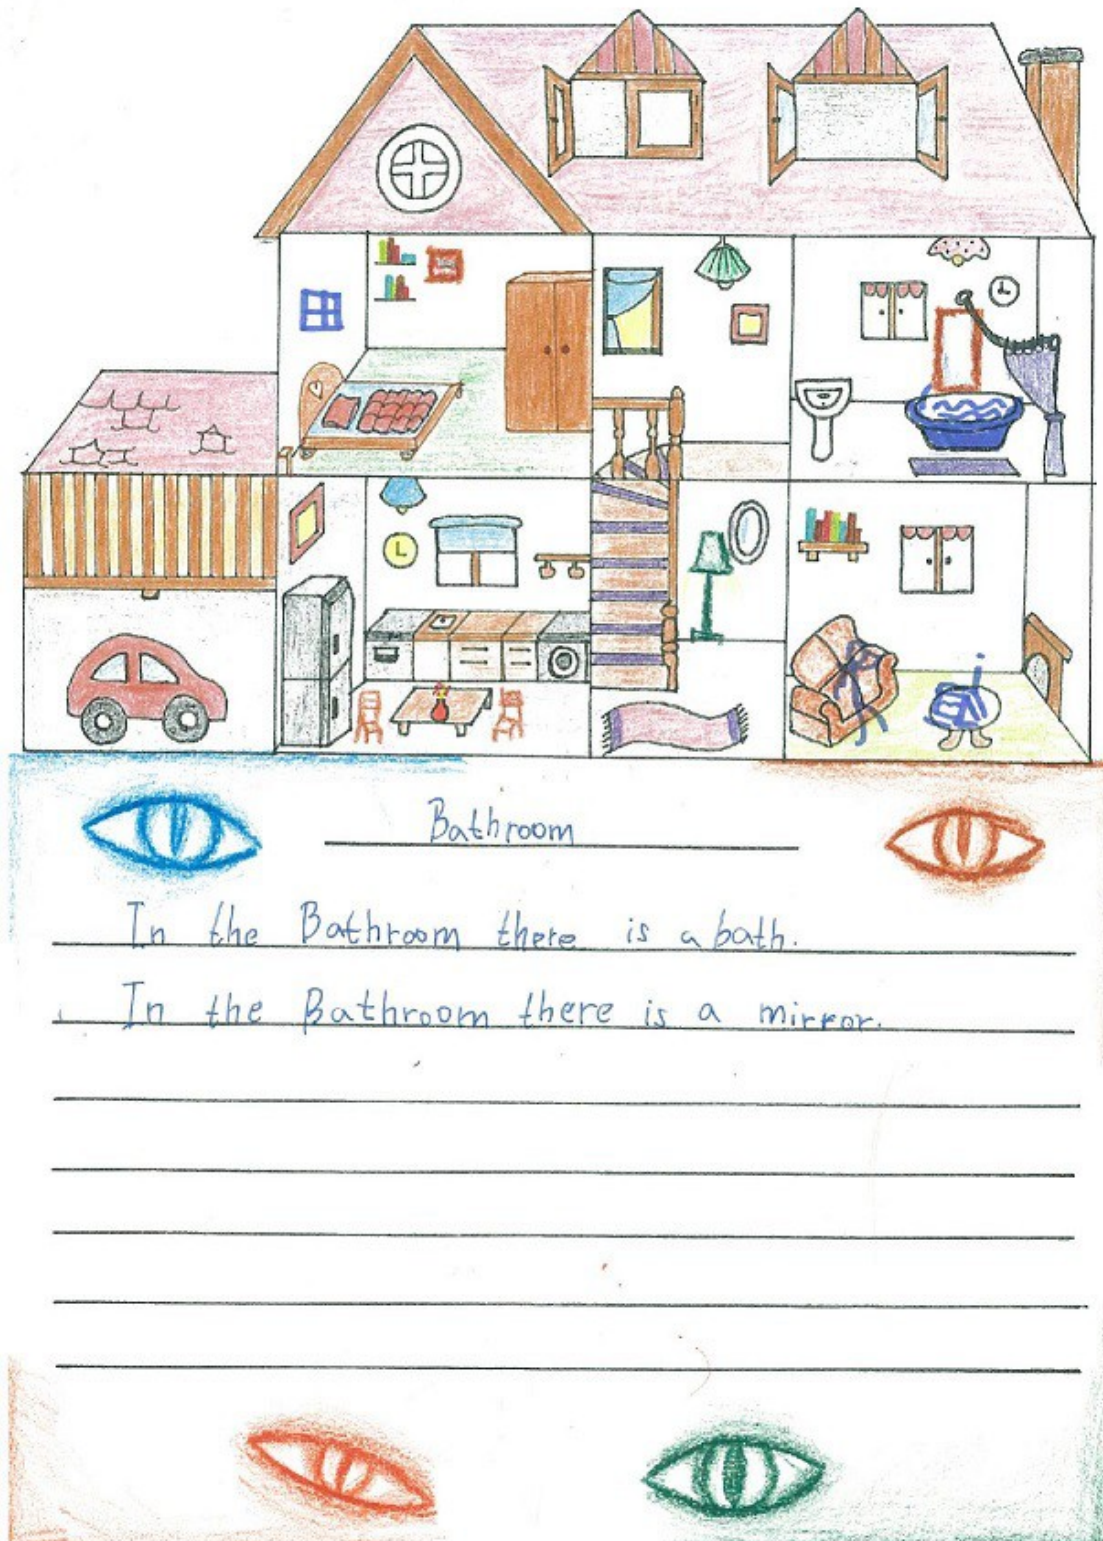 Bathroom
In the Bathroom there is a bath.
In the Bathroom there is a mirror.